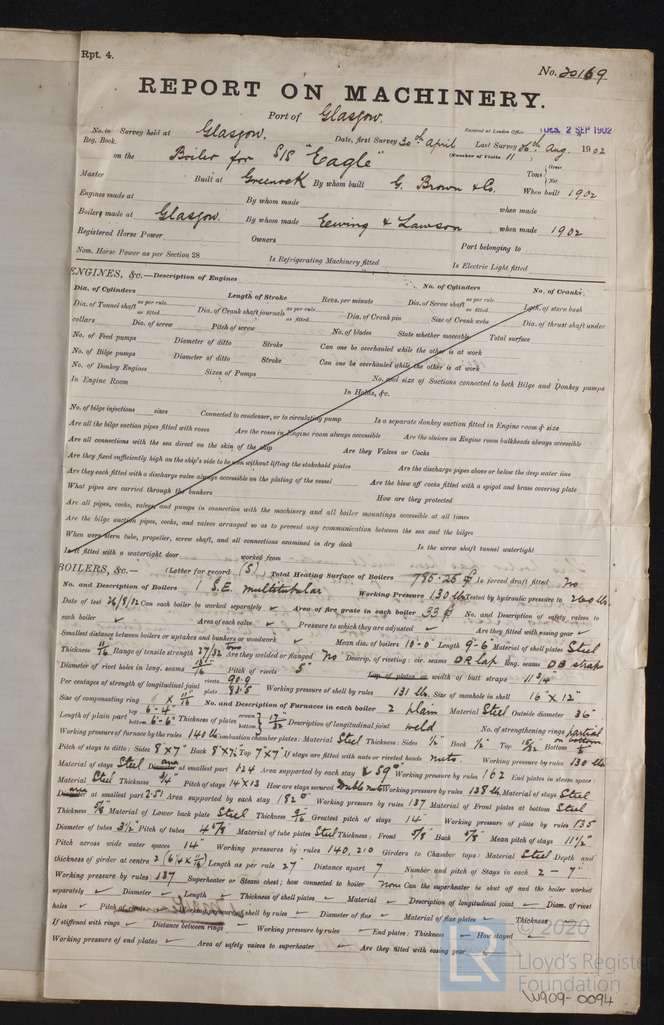 Rpt. 4.
No. 20169
REPORT ON MACHINERY.
Port of Glasgow.
Received at London Office TUES. 2 SEP 1902
No. in Survey held at Glasgow. Date, first Survey 30th April Last Survey 26th Aug. 1902
Reg. Book. (Number of Visits 11
on the Boiler for S/S "Eagle" Tons { Gross Net
Master Built at Greenock By whom built G. Brown & Co. When built 1902
Engines made at By whom made when made
Boilers made at Glasgow. By whom made Eewing & Lawson when made 1902
Registered Horse Power Owners Port belonging to
Nom. Horse Power as per Section 28 Is Refrigerating Machinery fitted Is Electric Light fitted
ENGINES, &c.—Description of Engines No. of Cylinders No. of Cranks
Dia. of Cylinders Length of Stroke Revs. per minute Dia. of Screw shaft as per rule as fitted Lgth. of stern bush
Dia. of Tunnel shaft as per rule as fitted Dia. of Crank shaft journals as per rule as fitted Dia. of Crank pin Size of Crank webs Dia. of thrust shaft under
collars Dia. of screw Pitch of screw No. of blades State whether moveable Total surface
No. of Feed pumps Diameter of ditto Stroke Can one be overhauled while the other is at work
No. of Bilge pumps Diameter of ditto Stroke Can one be overhauled while the other is at work
No. of Donkey Engines Sizes of Pumps No. and size of Suctions connected to both Bilge and Donkey pumps
In Engine Room In Holds, &c.
No. of bilge injections sizes Connected to condenser, or to circulating pump Is a separate donkey suction fitted in Engine room & size
Are all the bilge suction pipes fitted with roses Are the roses in Engine room always accessible Are the sluices on Engine room bulkheads always accessible
Are all connections with the sea direct on the skin of the ship Are they Valves or Cocks
Are they fixed sufficiently high on the ship's side to be seen without lifting the stokehold plates Are the discharge pipes above or below the deep water line
Are they each fitted with a discharge valve always accessible on the plating of the vessel Are the blow off cocks fitted with a spigot and brass covering plate
What pipes are carried through the bunkers How are they protected
Are all pipes, cocks, valves, and pumps in connection with the machinery and all boiler mountings accessible at all times
Are the bilge suction pipes, cocks, and valves arranged so as to prevent any communication between the sea and the bilges
When were stern tube, propeller, screw shaft, and all connections examined in dry dock Is the screw shaft tunnel watertight
Is it fitted with a watertight door worked from
BOILERS, &c.— (Letter for record (S) Total Heating Surface of Boilers 786.25 Is forced draft fitted No
No. and Description of Boilers 1 S.E. multitubular Working Pressure 130 lb Tested by hydraulic pressure to 260 lb.
Date of test 26/8/02 Can each boiler be worked separately ✓ Area of fire grate in each boiler 33 No. and Description of safety valves to
each boiler ✓ Area of each valve ✓ Pressure to which they are adjusted ✓ Are they fitted with easing gear ✓
Smallest distance between boilers or uptakes and bunkers or woodwork ✓ Mean dia. of boilers 10-0 Length 9-6 Material of shell plates Steel
Thickness 11/16 Range of tensile strength 27/32 tons Are they welded or flanged No Descrip. of riveting: cir. seams DR lap long. seams DB straps
Diameter of rivet holes in long. seams 13/16 Pitch of rivets 5" Lap of plates or width of butt straps 11 3/4"
Per centages of strength of longitudinal joint rivets 90.9 plate 83.5 Working pressure of shell by rules 131 lb. Size of manhole in shell 16" x 12"
Size of compensating ring 6 x 11/16 No. and Description of Furnaces in each boiler 2 plain Material Steel Outside diameter 36"
Length of plain part top 6-4" bottom 6-6" Thickness of plates crown bottom 17/32 Description of longitudinal joint weld No. of strengthening rings partial on bottom
Working pressure of furnace by the rules 140 lb Combustion chamber plates: Material Steel Thickness: Sides 1/2 Back 1/2 Top 15/32 Bottom 5/8
Pitch of stays to ditto: Sides 8"x7" Back 8"x7 1/2" Top 7"x7" If stays are fitted with nuts or riveted heads nuts. Working pressure by rules 130 lb
Material of stays Steel area at smallest part 1.24 Area supported by each stay 59 Working pressure by rules 162 End plates in steam space:
Material Steel Thickness 3/4" Pitch of stays 14 x 13 How are stays secured Double nuts Working pressure by rules 138 lb Material of stays Steel
area at smallest part 2.51 Area supported by each stay 182 Working pressure by rules 137 Material of Front plates at bottom Steel
Thickness 5/8 Material of Lower back plate Steel Thickness 9/16 Greatest pitch of stays 14" Working pressure of plate by rules 135
Diameter of tubes 3 1/2 Pitch of tubes 4 5/8 Material of tube plates Steel Thickness: Front 5/8 Back 5/8 Mean pitch of stays 11 1/2"
Pitch across wide water spaces 14" Working pressures by rules 140, 210 Girders to Chamber tops: Material Steel Depth and
thickness of girder at centre 2 (6 1/4 x 11/16) Length as per rule 27" Distance apart 7 Number and pitch of Stays in each 2 - 7"
Working pressure by rules 137 Superheater or Steam chest; how connected to boiler none Can the superheater be shut off and the boiler worked
separately ✓ Diameter ✓ Length ✓ Thickness of shell plates ✓ Material ✓ Description of longitudinal joint ✓ Diam. of rivet
holes ✓ Pitch of rivets Working pressure of shell by rules ✓ Diameter of flue ✓ Material of flue plates ✓ Thickness
If stiffened with rings ✓ Distance between rings ✓ Working pressure by rules ✓ End plates: Thickness ✓ How stayed
Working pressure of end plates ✓ Area of safety valves to superheater ✓ Are they fitted with easing gear ✓
© 2020
LR
Lloyd's Register
Foundation
W909-0094